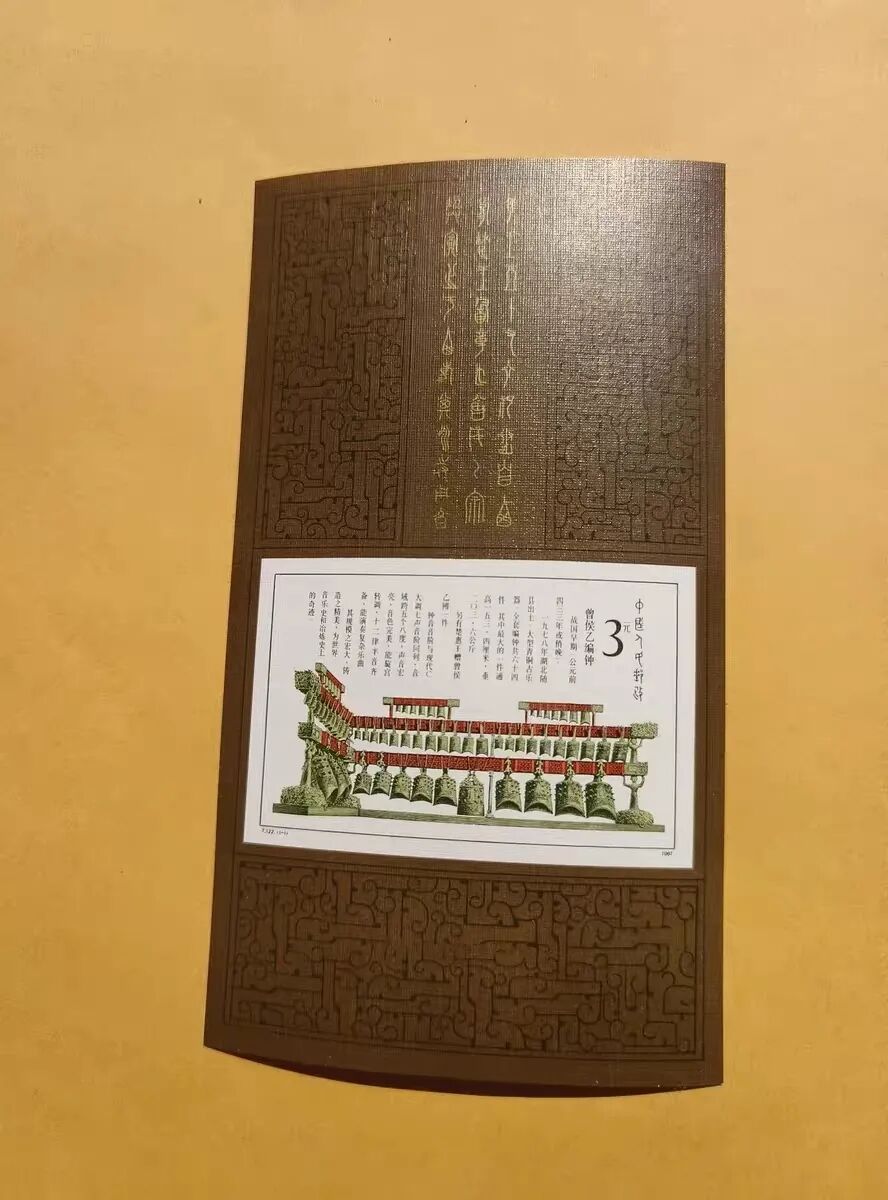 中国人民邮政
3元
曾侯乙编钟
战国早期，公元前
四三三年或稍晚。
一九七八年湖北随
县出土。大型青铜古乐
器。全套编钟共六十四
件，其中最大的一件通
高一五三·四厘米，重
二〇三·六公斤。
另有楚惠王赠曾侯
乙镈一件。
钟音音阶与现代C
大调七声音阶同列，音
域跨五个八度，声音宏
亮，音色完美，能旋宫
转调，十二律半音齐
备，能演奏复杂乐曲。
其规模之宏大，铸
造之精美，为世界
音乐史和冶炼史上
的奇迹。
1987